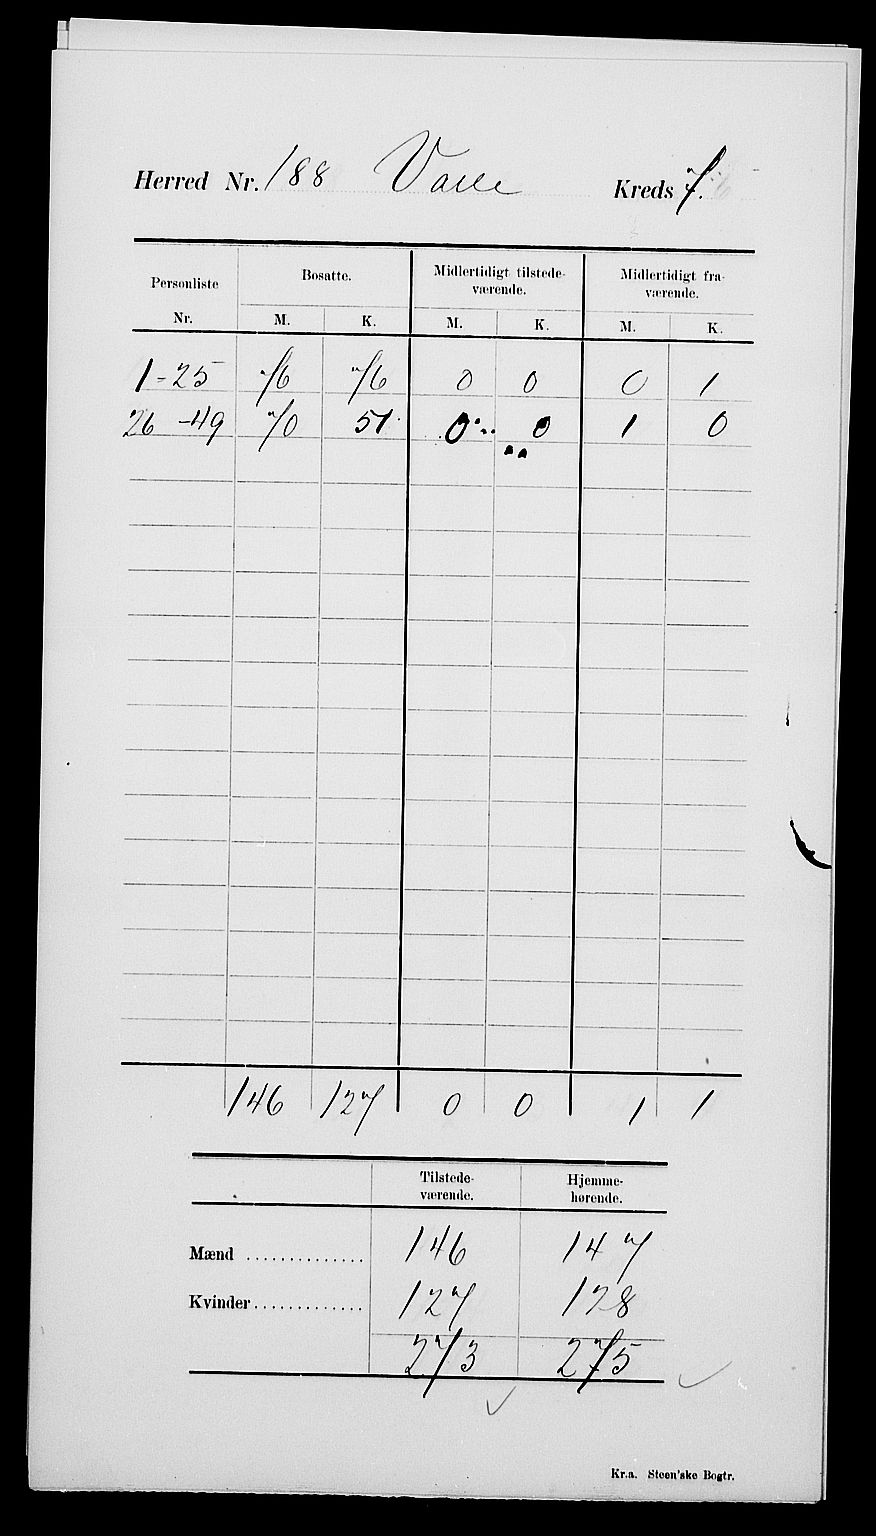 Herred Nr. 188 Valle Kreds 7.
Personliste Nr. Bosatte. Midlertidigt tilstede- værende. Midlertidigt fra- værende.
M. K. M. K. M. K.
1-25 76 76 0 0 0 1
26-49 70 51 0 0 1 0
146 127 0 0 1 1
Tilstede- værende. Hjemme- hørende.
Mænd .............. 146 147
Kvinder ............. 127 128
273 275
Kr.a. Steen'ske Bogtr.